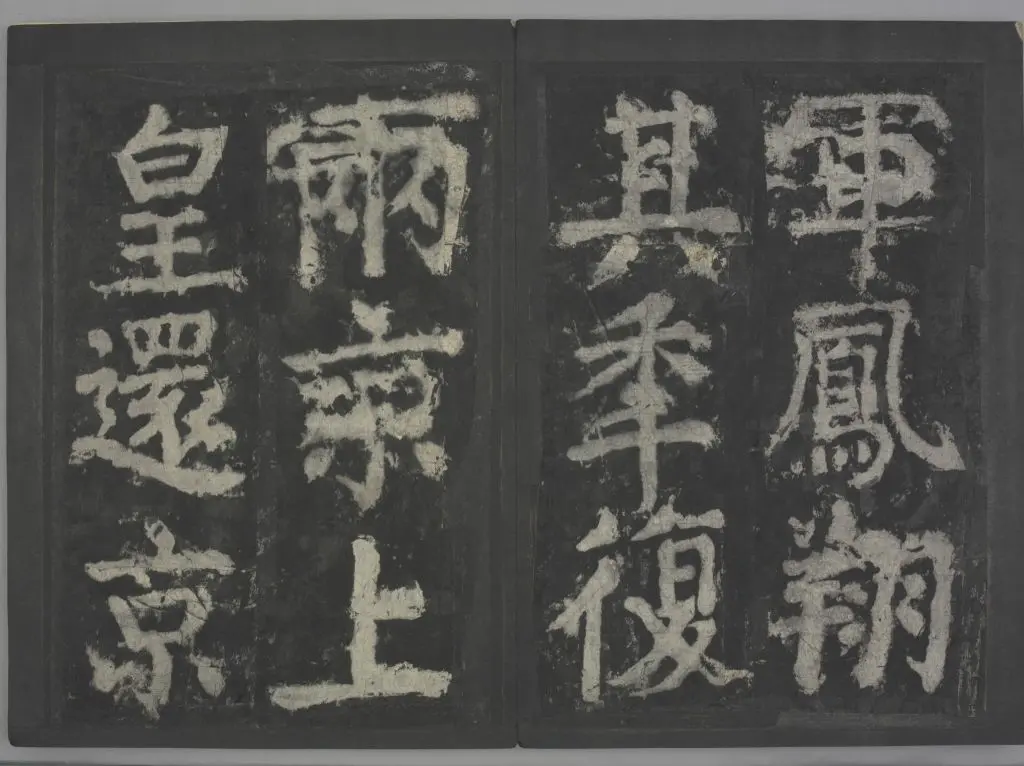 軍鳳翔
其秊復
兩京上
皇還京